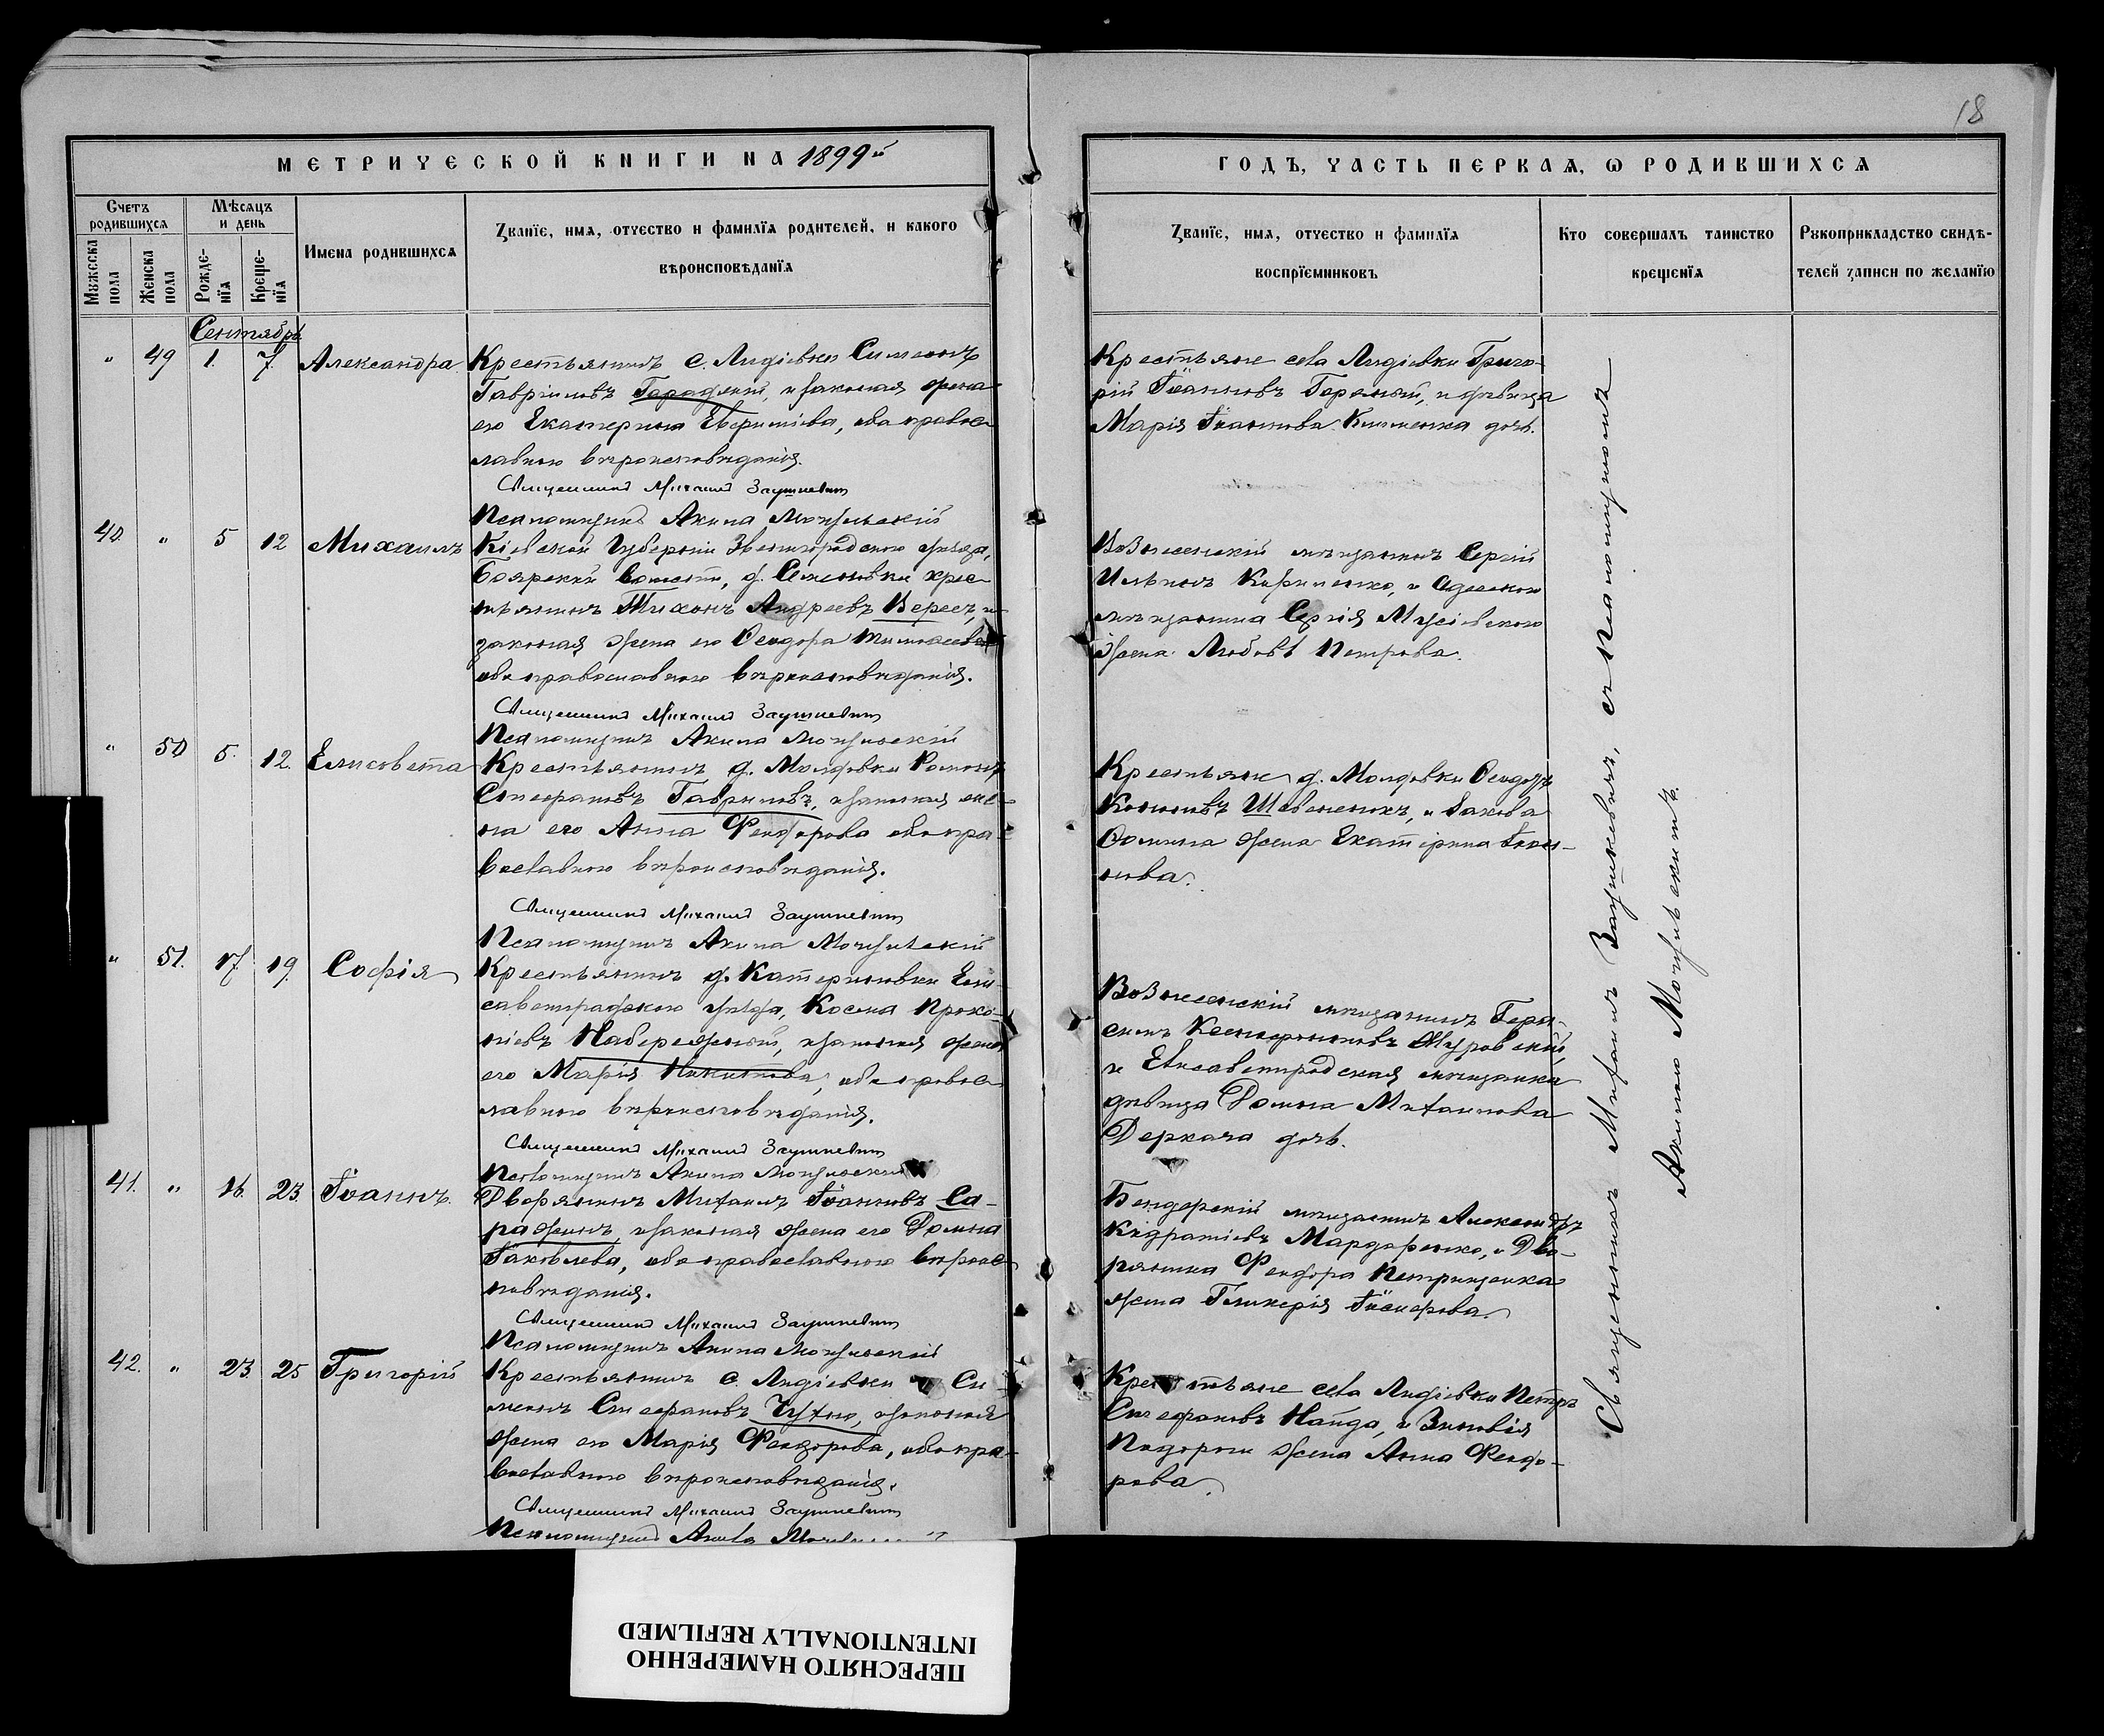 18
МЕТРИЧЕСКОЙ КНИГИ НА 1899й
ГОДЪ, ЧАСТЬ ПЕРВАѦ, Ѡ РОДИВШИХСѦ
Счетъ родившихсѧ
Мѣсѧцъ и день
Мужеска пола
Женска пола
Рожденїѧ
Крещенїѧ
Имена родившихсѧ
Званїе, имѧ, отчество и фамилїѧ родителей, и какого
вѣроисповѣданїѧ
Званїе, имѧ, отчество и фамилїѧ
воспрїемниковъ
Кто совершалъ таинство
крещенїѧ
Рукоприкладство свидѣ-
телей записи по желанїю
Сентябрь
„ 49 1. 7. Александра
Крестьянинъ с. Лидіевки Симеонъ
Гавріиловъ законная жена
его Екатерина обa правос
лавнаго вѣроисповѣданія.
Священникъ Михаилъ Заушкевичъ
Псаломщикъ Акила Могульскій
Крестьяне села Лидіевки Григо-
рій Іоанновъ и дѣвица
Марія Іоаннова дочь.
40. „ 5 12 Михаилъ
Кіевской Губерніи Звенигородскаго уѣзда,
Боярской волости, д. Семеновки крес
тьянинъ Тихонъ Андреевъ Вересъ, и
законная жена его Ѳеодора Тимоѳеева
оба православнаго вѣроисповѣданія.
Священникъ Михаилъ Заушкевичъ
Псаломщикъ Акила Могульскій
Вознесенскій мѣщанинъ Сергій
Ильинъ и Одесскаго
мѣщанина Сергія
жена Любовь Петрова.
„ 50 5. 12. Елисавета
Крестьянинъ д. Молдовки Романъ
Стефановъ Гавриловъ, и законная же-
на его Анна Феодорова оба пра-
вославнаго вѣроисповѣданія.
Священникъ Михаилъ Заушкевичъ
Псаломщикъ Акила Могульскій
Крестьяне д. Молдовки Ѳеодоръ
Кононовъ и Іакова
Ѳомина жена Екатерина Іоан-
нова.
„ 51. 17 19. Софія
Крестьянинъ д. Катериновки Ели-
саветградскаго уѣзда, Косма Проко-
піевъ Набережный, и законная жена
его Марія Никитова, оба правос
лавнаго вѣроисповѣданія.
Священникъ Михаилъ Заушкевичъ
Псаломщикъ Акила Могульскій
Вознесенскій мѣщанинъ Гера-
симъ Ксенофонтовъ
и Елисаветградская мѣщанка
дѣвица Домна Михаилова
Деркача дочь.
41. „ 16. 23. Іоаннъ.
Дворянинъ Михаилъ Іоанновъ Са-
ражинъ, и законная жена его Домна
Іаковлева, оба православнаго вѣроис
повѣданія.
Священникъ Михаилъ Заушкевичъ
Псаломщикъ Акила Могульскій
Бендерскій мѣщанинъ Александръ
Кодратіевъ Мардаренко, и Дво-
рянина Феодора Петриценка
жена Гликерія Іосифова.
42. „ 23. 25 Григорій
Крестьянинъ с. Лидіевки Си
меонъ Стефановъ Чухно, и законная
жена его Марія Феодорова, оба пра-
вославнаго вѣроисповѣданія.
Священникъ Михаилъ Заушкевичъ
Псаломщикъ Акила
Крестьяне села Лидіевки Петръ
Стефановъ Найда, и Зиновія
жена Анна Феодо-
рова.
Священникъ Михаилъ Заушкевичъ, съ псаломщикомъ
Акилою Могульскимъ.
ПЕРЕСНЯТО НАМЕРЕННО
INTENTIONALLY REFILMED